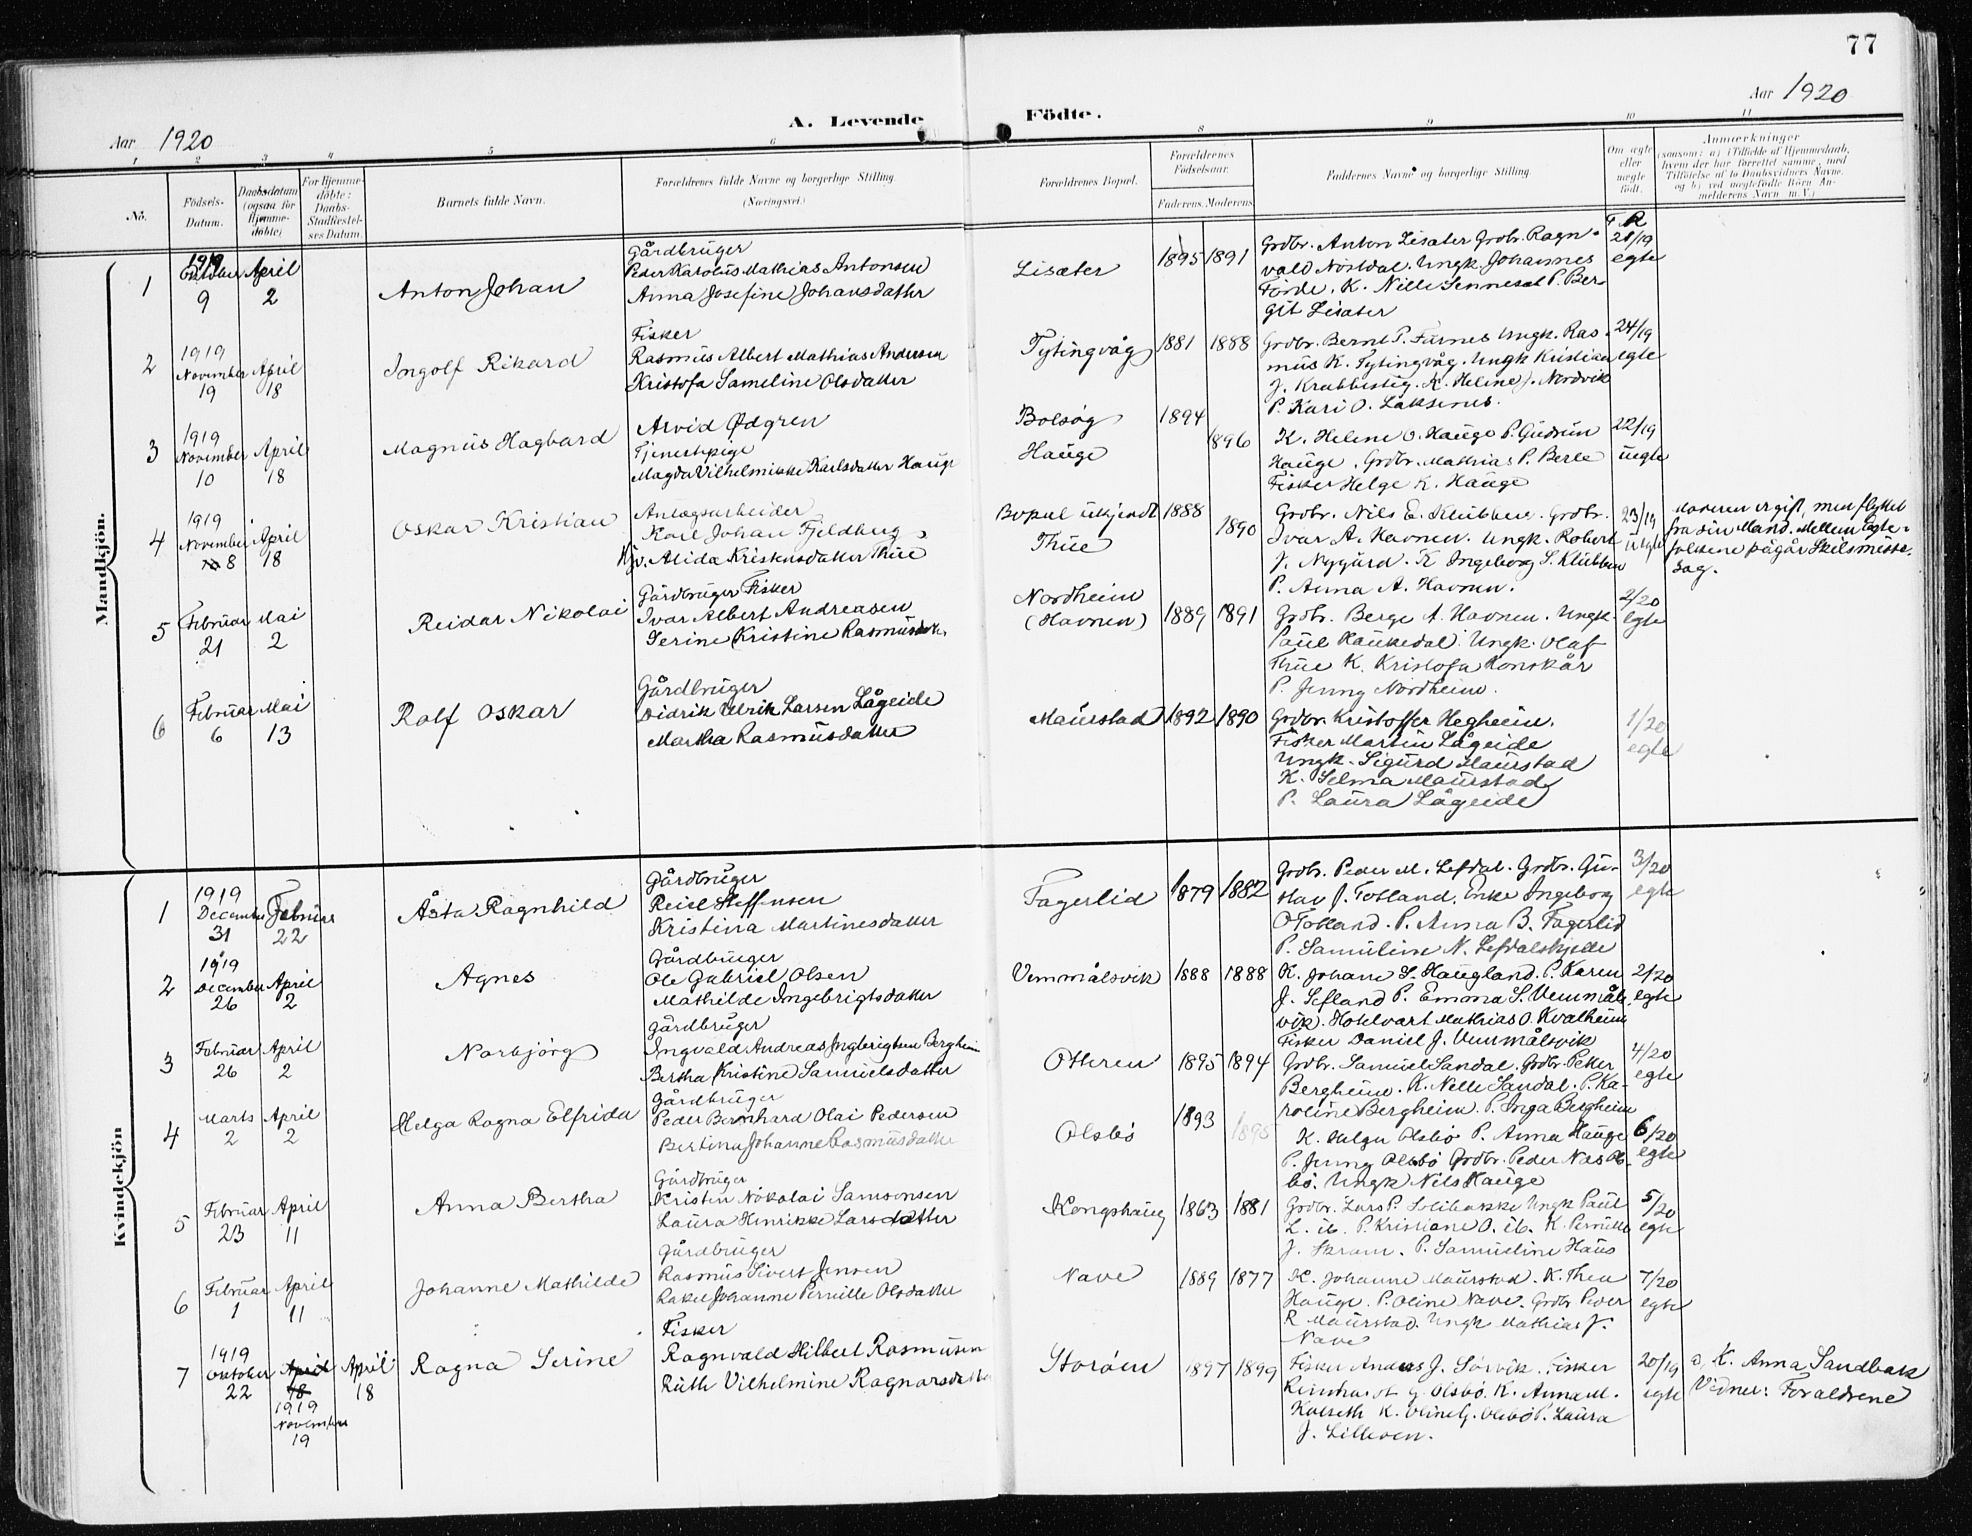 77
Aar 1920
A. Levende Födte.
Aar 1920
1 2 3 4 5 6 8 9 10 11
No.
Födsels-Datum.
Daabsdatum (ogsaa for Hjemme-döbte)
For Hjemme-döbte: Daabs-Stadfæstel-ses Datum.
Barnets fulde Navn.
Forældrenes fulde Navne og borgerlige Stilling
(Næringsvei.)
Forældrenes Bopæl.
Forældrenes Födselsaar.
Faderens. Moderens.
Faddernes Navne og borgerlige Stilling
Om ægte eller uægte födt.
Anmærkninger
(saasom: a) i Tilfælde af Hjemmedaab,
hvem der har forrettet samme, med
Tilföielse af to Daabsvidners Navne.
og b) ved uegtefödte Börn An-
melderens Navn m.V.)
Mandkjön.
1 1919 Oktober 9 April 2 Anton Johan
Gårdbruger
Peder Karolus Mathias Antonsen
Anna Josefine Johansdatter
Lisæter 1895 1891
Grdbr. Anton Lisæter Grdbr. Ragn-
vald Nöstdal. Ungk. Johannes
Förde. K. Nille Senneset P. Ber-
git Lisæter
21/19 egte
2 1919 November 19 April 18 Ingolf Rikard
Fisker
Rasmus Albert Mathias Andersen
Kristofa Sameline Olsdatter
Tytingvåg 1881 1888
Grdbr. Bernt P. Furnes Ungk. Ras-
mus K. Tytingvåg. Ungk Kristian
J. Krabbestig. K. Heline J. Nordvik
P. Kari O. Laksenes.
24/19 egte
3 1919 November 10 April 18 Magnus Hagbard
Arvid Ødgren
Tjenestpige
Magda Vilhelmikke Karlsdatter Hauge
Bolsøg
Hauge
1894 1896
K. Helene O. Hauge P. Gudrun
Hauge. Grdbr. Mathias P. Berle
Fisker Helge K. Hauge
22/19 uegte
4 1919 November 8 April 18 Oskar Kristian
Anlægsarbeider
Karl Johan Fjeldberg
Alida Kristensdatter Thue
Bopæl ukjendt
Thue
1888 1890
Grdbr. Nils E. Klubben. Grdbr.
Ivar A. Havnen. Ungk. Robert
J. Nygård. K Ingeborg S. Klubben
P. Anna A. Havnen.
23/19 uegte
Moderen er gift, men flyttet
fra sin Mand. Mellem Egte-
folkene pågår Skilsmisse-
sag.
5 Februar 21 Mai 2 Reidar Nikolai
Gårdbruger Fisker
Ivar Albert Andreasen
Serine Kristine Rasmusdtr.
Nordheim
(Havnen)
1889 1891
Grdbr. Berge A. Havnen. Ungk.
Paul Haukedal. Ungk. Olaf
Thue K. Kristofa Honskår
P. Jenny Nordheim.
2/20 egte
6 Februar 6 Mai 13 Rolf Oskar
Gårdbruger
Didrik Ulrik Larsen Lågeide
Martha Rasmusdatter
Maurstad 1892 1890
Grdbr. Kristoffer Hegheim.
Fisker Martin Lågeide
Ungk. Sigurd Maurstad
K. Selma Maurstad
P. Laura Lågeide
1/20 egte
Kvindekjön
1 1919 December 31 Februar 22 Åsta Ragnhild
Gårdbruger
Peter Steffensen
Kristina Martinesdatter
Fagerlid 1879 1882
Grdbr. Peder M. Lefdal. Grdbr. Gu-
stav J. Totland. Enke Ingeborg
O Totland. P. Anna B. Fagerlid
P. Samuline N. Lefdalskjelle
3/20 egte
2 1919 December 26 April 2 Agnes
Gårdbruger
Ole Gabriel Olsen
Mathilde Ingebrigtsdatter
Vemmålsvik 1888 1888
K. Johanne S. Haugland. P. Karen
J. Sefland P. Emma S. Vemmåls-
vik. Hotelvært Mathias O. Kvalheim
Fisker Daniel J. Vemmålsvik
2/20 egte
3 Februar 26 April 2 Norbjörg
Gårdbruger
Ingvald Andreas Ingbrigtsen Bergheim
Bertha Kristine Samuelsdatter
Otteren 1895 1894
Grdbr. Samuel Sandal. Grdbr. Petter
Bergheim. K. Nelle Sandal. P. Ka-
roline Bergheim. P. Inga Bergheim
4/20 egte
4 Marts 2 April 2 Helga Ragna Elfrida
Gårdbruger
Peder Bernhard Olai Pedersen
Bertina Johanne Rasmusdatter
Olsbö 1893 1895
K. Helga Olsbö P. Anna Hauge
P. Jenny Olsbö Grdbr. Peder Nas Ols-
bö. Ungk Nils Hauge
6/20 egte
5 Februar 23 April 11 Anna Bertha
Gårdbruger
Kristen Nikolai Samsonsen
Laura Henrikke Larsdatter
Kongshaug 1863 1881
Grdbr. Lars P. Ungk Paul
L. ib. P. Kristiane O. ib. K. Pernille
J. Skram. P. Samueline Haus
5/20 egte
6 Februar 1 April 11 Johanne Mathilde
Gårdbruger
Rasmus Sivert Jensen
Rakel Johanne Pernille Olsdatter
Nave 1889 1877
K. Johanne Maurstad. K. Thea
Hauge. P. Oline Nave. Grdbr. Peder
R Maurstad. Ungk Mathias J.
Nave
7/20 egte
7 1919 Oktober 22 April 18 1919 November 19 April 18 Ragna Serine
Fisker
Ragnvald Hilbert Rasmusen
Ruth Vilhelmine Ragnarsdatter
Storöen 1897 1899
Fisker Anders J. Sörvik. Fisker
Reinhardt G. Olsbö. K. Anna M.
K. Oline G. Olsbö P. Laura
J. Lilleven.
20/19 egte
a, K. Anna Sandbak
Vidner: Forældrene